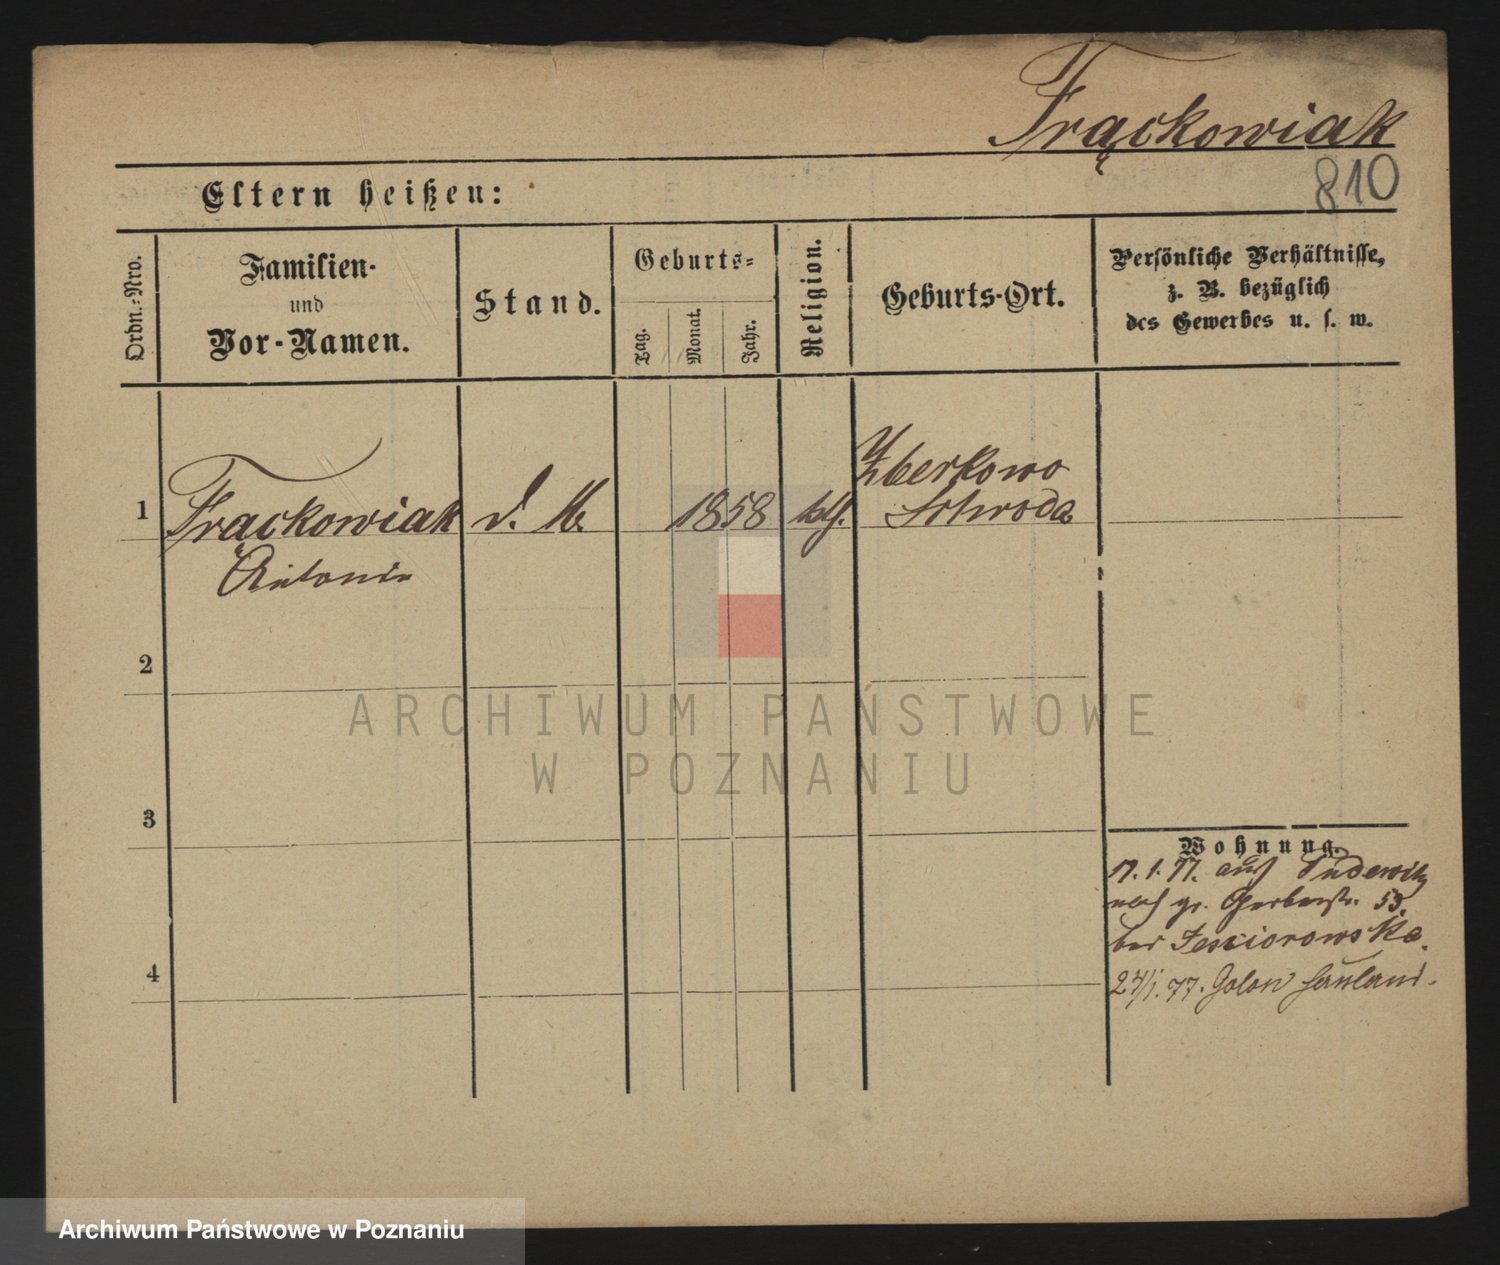 Frąckowiak
810
Eltern heißen:
Ordn.-Nro.
Familien-
und
Vor-Namen.
Stand.
Geburts-
Tag.
Monat.
Jahr.
Religion.
Geburts-Ort.
Persönliche Verhältnisse,
z. B. bezüglich
des Gewerbes u. s. w.
1
Frąckowiak
d. M.
1858
kth.
Schroda
Antonie
2
3
4
Wohnung.
17. 1. 77. aus Pudewitz
nach gr. Gerberstr. 53.
bei
24/1. 77.
ARCHIWUM PAŃSTWOWE
W POZNANIU
Archiwum Państwowe w Poznaniu